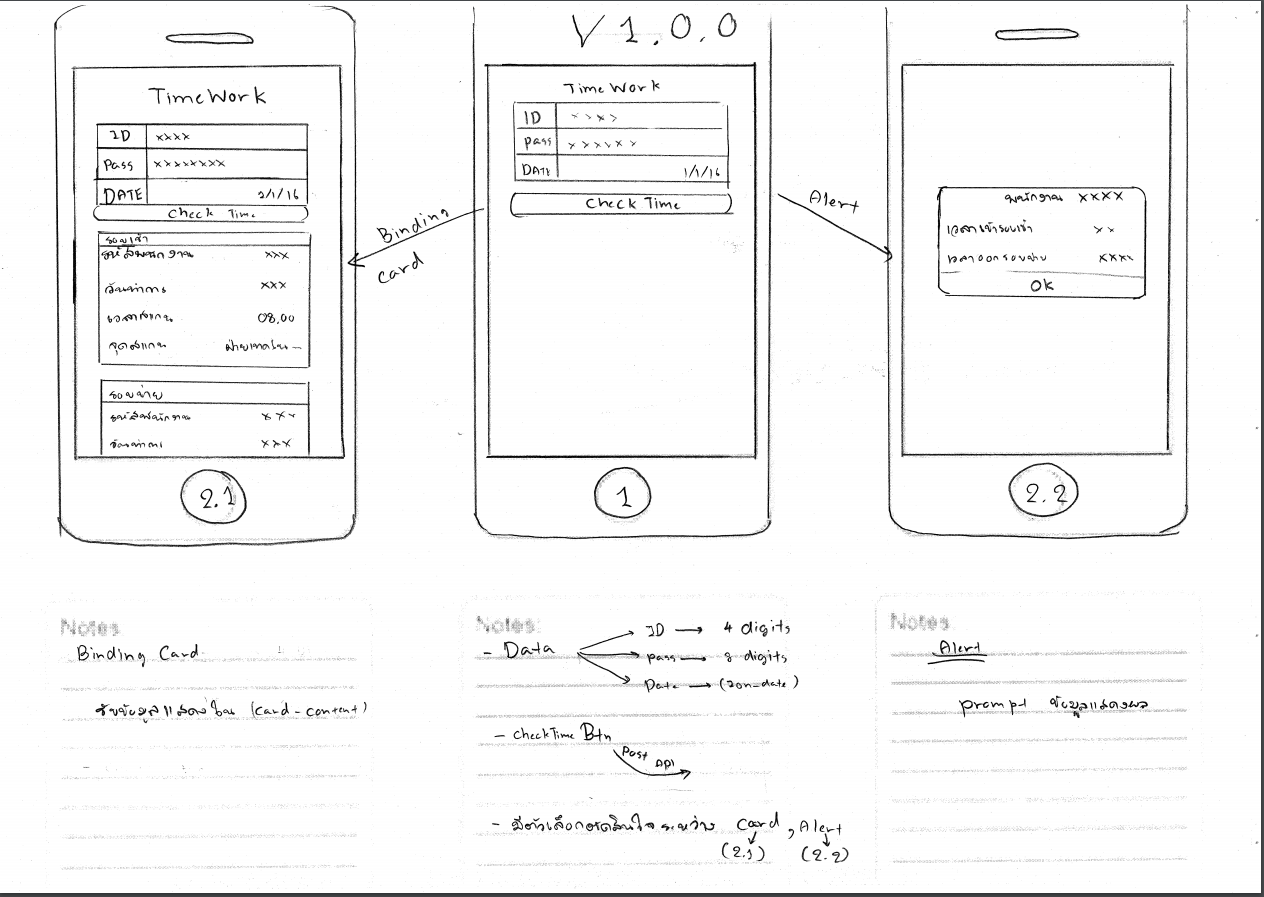 V 1.0.0
TimeWork
ID xxxx
Pass xxxxxxxx
DATE 2/1/16
Check Time
รอบเช้า
รหัสพนักงาน xxx
วันทำการ xxx
เวลาสแกน 08.00
จุดสแกน
รอบบ่าย
รหัสพนักงาน xxx
วันทำการ xxx
2.1
Binding
card
Time Work
ID xxxx
pass xxxxxx
DATE 1/1/16
Check Time
1
Alert
พนักงาน xxxx
เวลาเข้ารอบเช้า xx
เวลาออกรอบบ่าย xxxx
Ok
2.2
Notes
Binding Card
(card-content)
Notes:
- Data
ID → 4 digits
pass → 8 digits
Date → (ion-date)
- CheckTime Btn
Post API
- มีตัวเลือกตัดสินใจระหว่าง Card, Alert
(2.1) (2.2)
Notes
Alert
prompt ข้อมูลแสดงผล